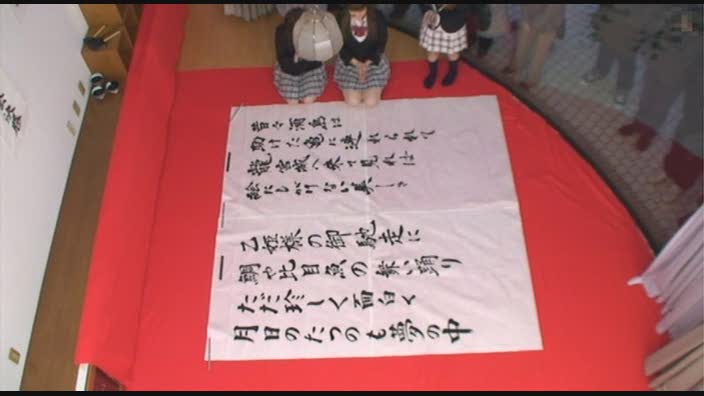 昔々浦島は
助けた亀に連れられて
龍宮城へ来て見れば
絵にもかけない美しさ
乙姫様の御馳走に
鯛や比目魚の舞い踊り
ただ珍しく面白く
月日のたつのも夢の中